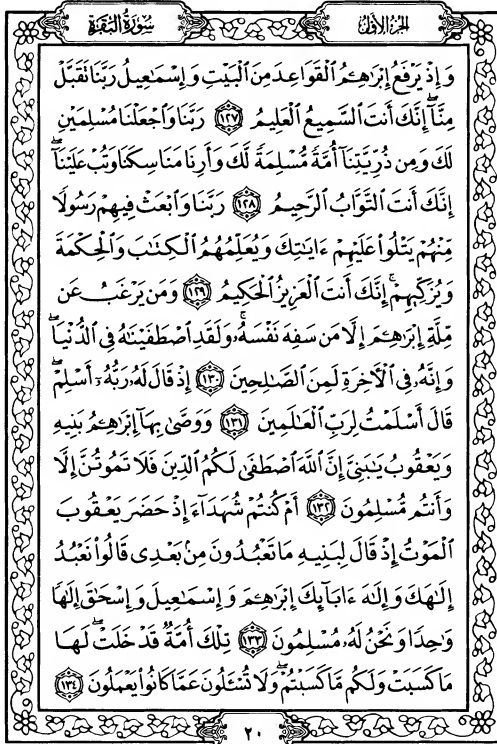 سُورَةُ البَقَرَةِ
الجزءُ الأوّلُ
وَإِذْ يَرْفَعُ إِبْرَٰهِـۧمُ ٱلْقَوَاعِدَ مِنَ ٱلْبَيْتِ وَإِسْمَـٰعِيلُ رَبَّنَا تَقَبَّلْ
مِنَّآ ۖ إِنَّكَ أَنتَ ٱلسَّمِيعُ ٱلْعَلِيمُ ١٢٧ رَبَّنَا وَٱجْعَلْنَا مُسْلِمَيْنِ
لَكَ وَمِن ذُرِّيَّتِنَآ أُمَّةً مُّسْلِمَةً لَّكَ وَأَرِنَا مَنَاسِكَنَا وَتُبْ عَلَيْنَآ ۖ
إِنَّكَ أَنتَ ٱلتَّوَّابُ ٱلرَّحِيمُ ١٢٨ رَبَّنَا وَٱبْعَثْ فِيهِمْ رَسُولًا
مِّنْهُمْ يَتْلُوا۟ عَلَيْهِمْ ءَايَـٰتِكَ وَيُعَلِّمُهُمُ ٱلْكِتَـٰبَ وَٱلْحِكْمَةَ
وَيُزَكِّيهِمْ ۚ إِنَّكَ أَنتَ ٱلْعَزِيزُ ٱلْحَكِيمُ ١٢٩ وَمَن يَرْغَبُ عَن
مِّلَّةِ إِبْرَٰهِـۧمَ إِلَّا مَن سَفِهَ نَفْسَهُۥ ۚ وَلَقَدِ ٱصْطَفَيْنَـٰهُ فِى ٱلدُّنْيَا ۖ
وَإِنَّهُۥ فِى ٱلْـَٔاخِرَةِ لَمِنَ ٱلصَّـٰلِحِينَ ١٣٠ إِذْ قَالَ لَهُۥ رَبُّهُۥٓ أَسْلِمْ ۖ
قَالَ أَسْلَمْتُ لِرَبِّ ٱلْعَـٰلَمِينَ ١٣١ وَوَصَّىٰ بِهَآ إِبْرَٰهِـۧمُ بَنِيهِ
وَيَعْقُوبُ يَـٰبَنِىَّ إِنَّ ٱللَّهَ ٱصْطَفَىٰ لَكُمُ ٱلدِّينَ فَلَا تَمُوتُنَّ إِلَّا
وَأَنتُم مُّسْلِمُونَ ١٣٢ أَمْ كُنتُمْ شُهَدَآءَ إِذْ حَضَرَ يَعْقُوبَ
ٱلْمَوْتُ إِذْ قَالَ لِبَنِيهِ مَا تَعْبُدُونَ مِنۢ بَعْدِى قَالُوا۟ نَعْبُدُ
إِلَـٰهَكَ وَإِلَـٰهَ ءَابَآئِكَ إِبْرَٰهِـۧمَ وَإِسْمَـٰعِيلَ وَإِسْحَـٰقَ إِلَـٰهًا
وَٰحِدًا وَنَحْنُ لَهُۥ مُسْلِمُونَ ١٣٣ تِلْكَ أُمَّةٌ قَدْ خَلَتْ ۖ لَهَا
مَا كَسَبَتْ وَلَكُم مَّا كَسَبْتُمْ ۖ وَلَا تُسْـَٔلُونَ عَمَّا كَانُوا۟ يَعْمَلُونَ ١٣٤
٢٠